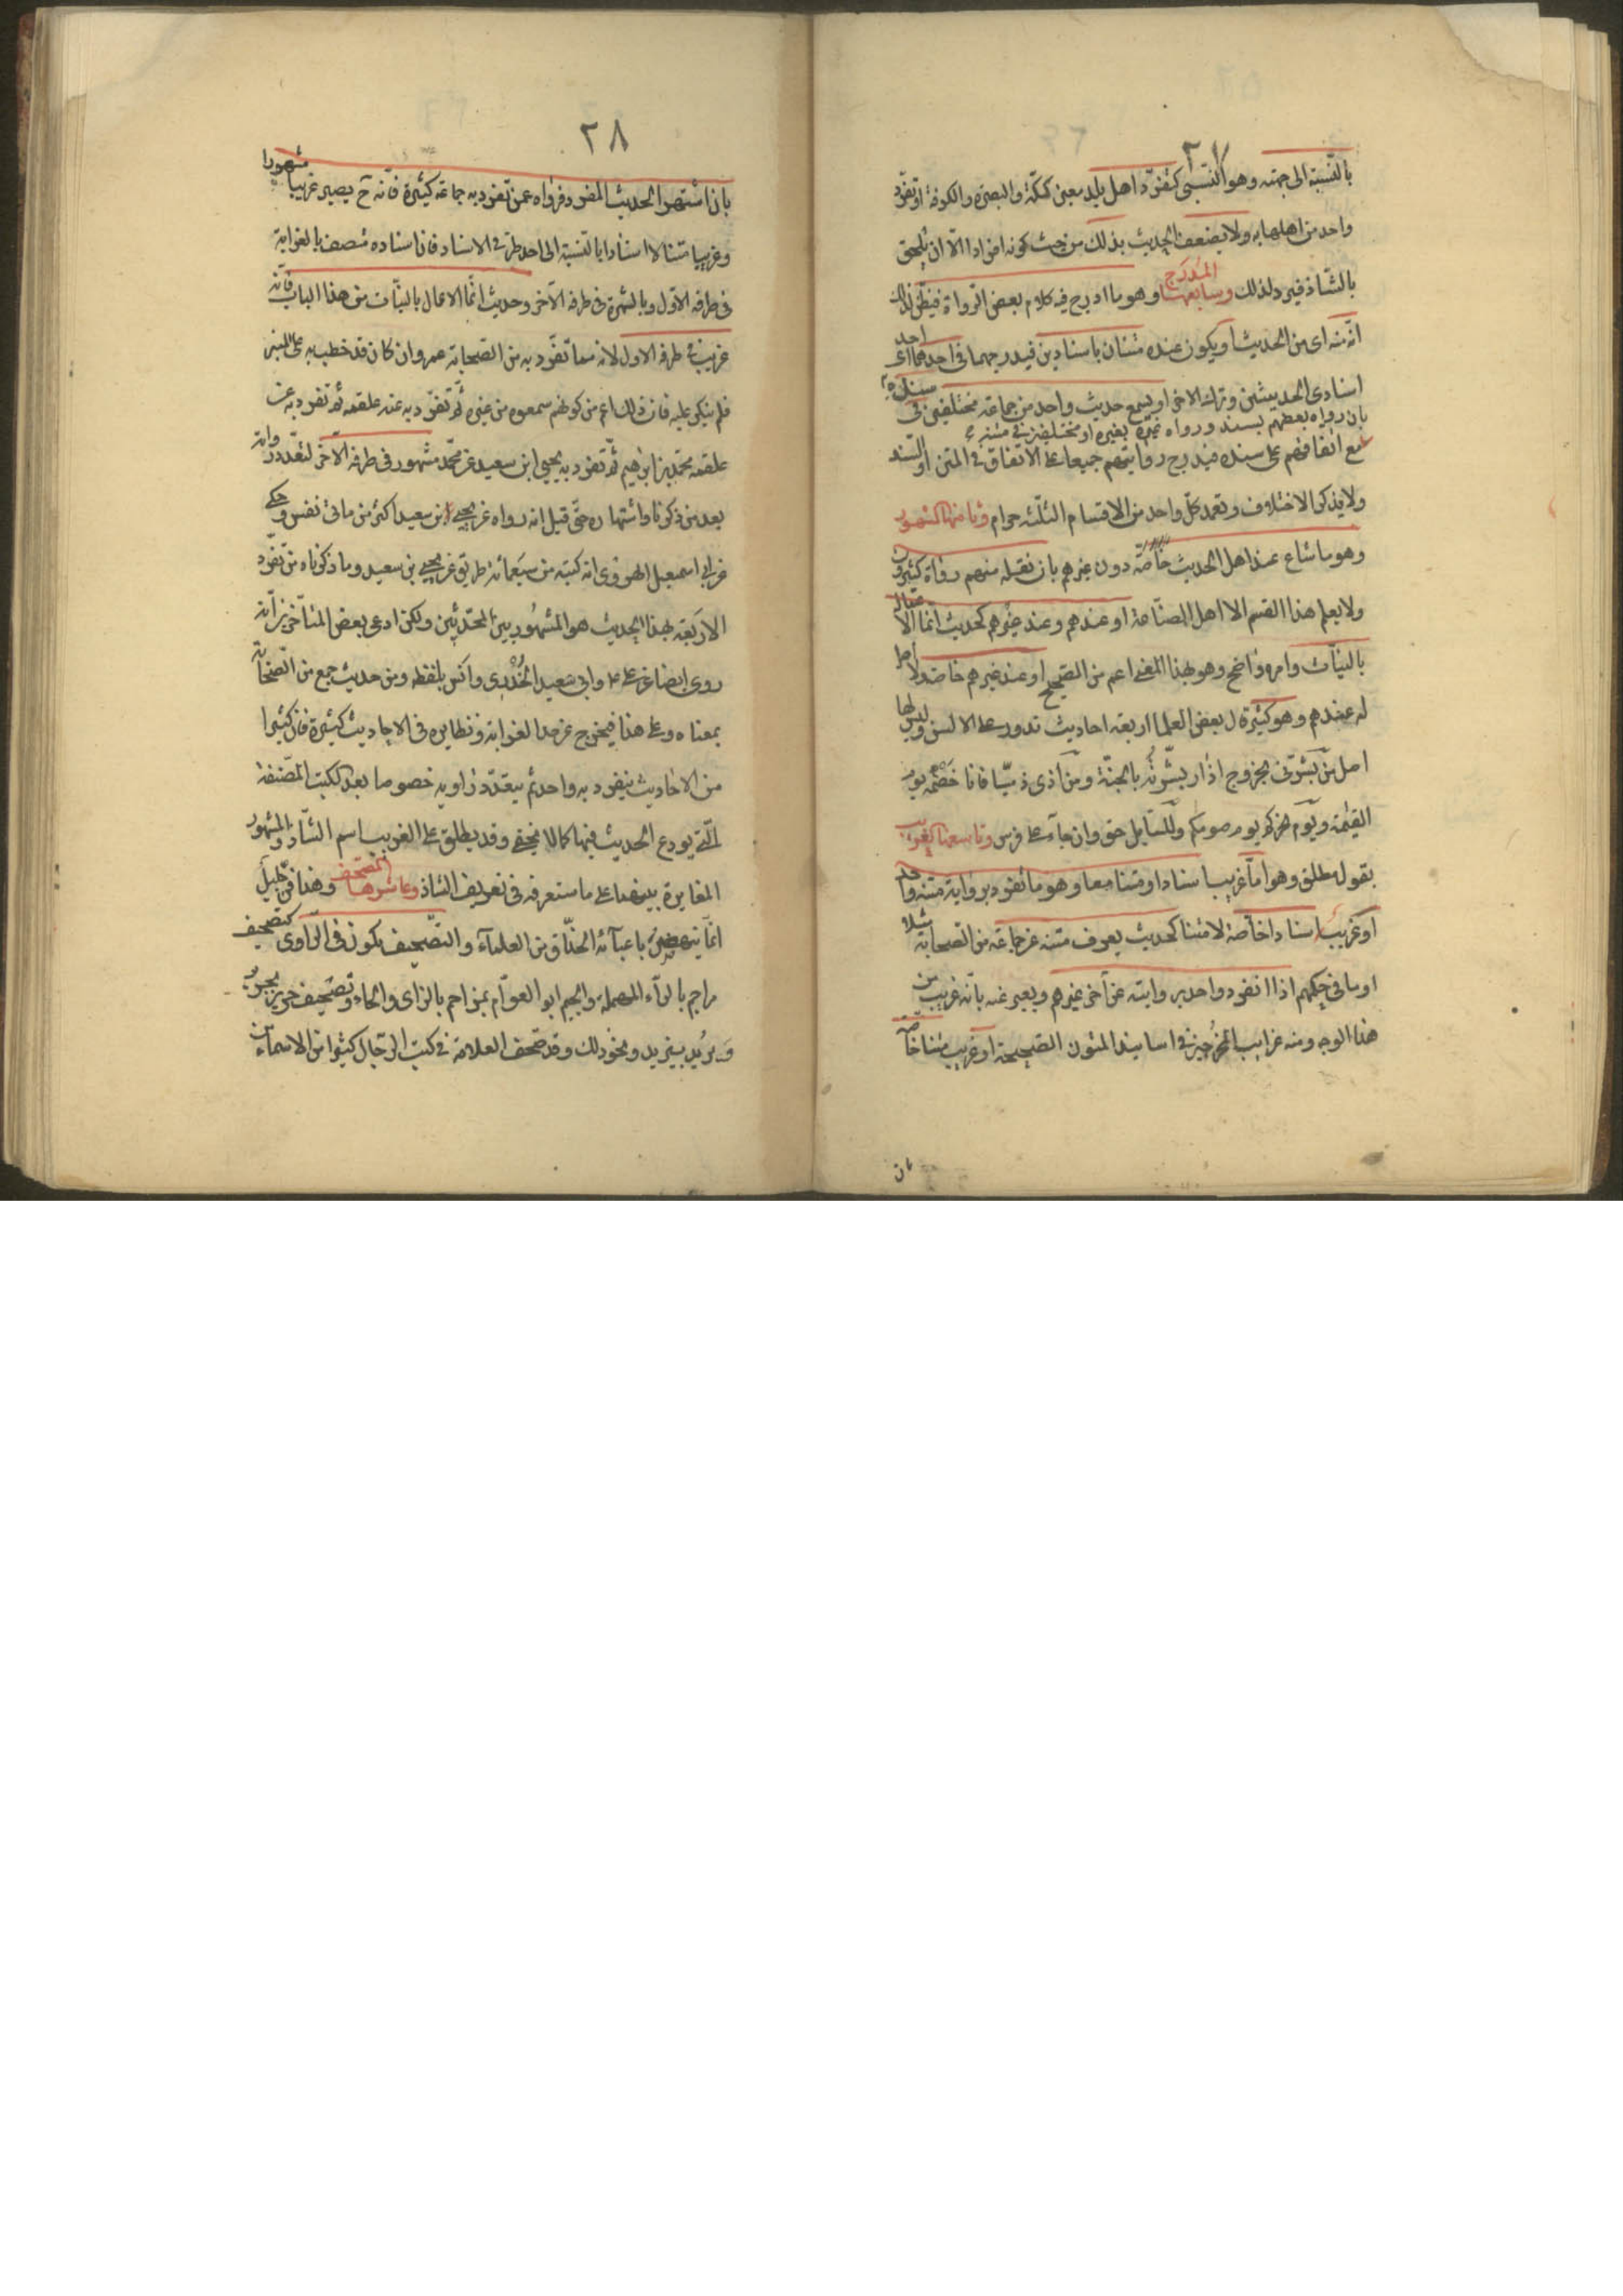 ٢٧
بالنسبة الى جهة وهو النسبى كتفرد اهل بلد معين كمكة والبصرة والكوفة او تفرد
واحد من اهلها به ولا يضعف الحديث بذلك من حيث كونه افرادا الا ان يلحق
بالشاذ فيرد لذلك وسابعها المدرج وهو ما ادرج فيه كلام بعض الرواة فيظن لذلك
انه منه اى من الحديث او يكون عنده متنان باسنادين فيدرجهما فى احدهما اى احد
اسنادى الحديثين وترك الاخر او يسمع حديث واحد من جماعة مختلفين فى سنده
بان رواه بعضهم بسند ورواه غيره بغيره او مختلفين فى متنه
مع اتفاقهم على سنده فيدرج روايتهم جميعا على الاتفاق فى المتن او السند
ولا يذكر الاختلاف وتعمد كل واحد من الاقسام الثلثة حرام وثامنها المشهور
وهو ما شاع عند اهل الحديث خاصة دون غيرهم بان نقله منهم رواة كثيرون
ولا يعلم هذا القسم الا اهل الصناعة او عندهم وعند غيرهم كحديث انما الاعمال
بالنيات وامره واضح وهو بهذا المعنى اعم من الصحيح او عند غيرهم خاصة ولا اصل
له عندهم وهو كثير قال بعض العلما اربعة احاديث تدور على الالسن وليس لها
اصل من بشرنى بخروج اذار بشرته بالجنة ومن آذى ذميا فانا خصمه يوم
القيمة ويوم نحركم يوم صومكم وللسايل حق وان جاء على فرس وتاسعها الغريب
بقول مطلق وهو اما غريب اسنادا ومتنا معا وهو ما تفرد برواية متنه واحد
او غريب اسنادا خاصة لا متنا كحديث يعرف متنه عن جماعة من الصحابة مثلا
او ما فى حكمهم اذا انفرد واحد بروايته عن آخر غيرهم ويعبر عنه بانه غريب من
هذا الوجه ومنه غرايب المخرجين فى اسانيد المتون الصحيحة او غريب متنا خاصة
بان
٢٨
بان اشتهر الحديث المفرد فرواه عمن تفرد به جماعة كثيرة فانه ح يصير غريبا مشهورا
وغريبا متنا لا اسنادا بالنسبة الى احد طرفى الاسناد فان اسناده متصف بالغرابة
فى طرفه الاول وبالشهرة فى طرفه الآخر وحديث انما الاعمال بالنيات من هذا الباب فانه
غريب فى طرفه الاول لانه مما تفرد به من الصحابة عمر وان كان قد خطب به على المنبر
فلم ينكر عليه فان ذلك اعم من كونهم سمعوه من غيره ثم تفرد به عنه علقمة ثم تفرد به عن
علقمة محمد بن ابرهيم ثم تفرد به يحيى ابن سعيد عن محمد مشهور فى طرفه الآخر لتعدد رواته
بعد من ذكرنا واشتهاره حتى قيل انه رواه عن يحيى ابن سعيد اكثر من مائتى نفس وحكى
عن ابى اسمعيل الهروى انه كتبه من سبعمائة طريق عن يحيى بن سعيد وما ذكرناه من تفرد
الاربعة بهذا الحديث هو المشهور بين المحدثين ولكن ادعى بعض المتأخرين انه
روى ايضا عن على ع وابى سعيد الخدرى وانس بلفظه ومن حديث جمع من الصحابة
بمعناه وعلى هذا فيخرج عن حد الغرابة ونظايره فى الاحاديث كثيرة فان كثيرا
من الاحاديث ينفرد به واحد ثم يتعدد راويه خصوصا بعد الكتب المصنفة
التى يودع الحديث فيها كما لا يخفى وقد يطلق على الغريب اسم الشاذ والمشهور
المغايرة بينهما على ما ستعرفه فى تعريف الشاذ وعاشرها المصحف وهذا فن جليل
انما ينهض باعبائه الحذاق من العلماء والتصحيف يكون فى الراوى كتصحيف
مراجم بالراء المهملة والجيم ابو العوام بمزاحم بالزاى والحاء وتصحيف حريز بجرير
وبريد بيزيد ونحو ذلك وقد صحف العلامة فى كتب الرجال كثيرا من الاسماء من